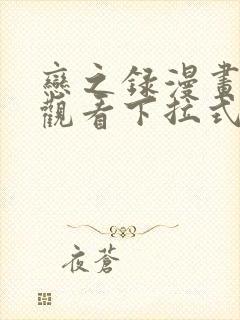 戀之録漫畫
觀看下拉式
夜蒼